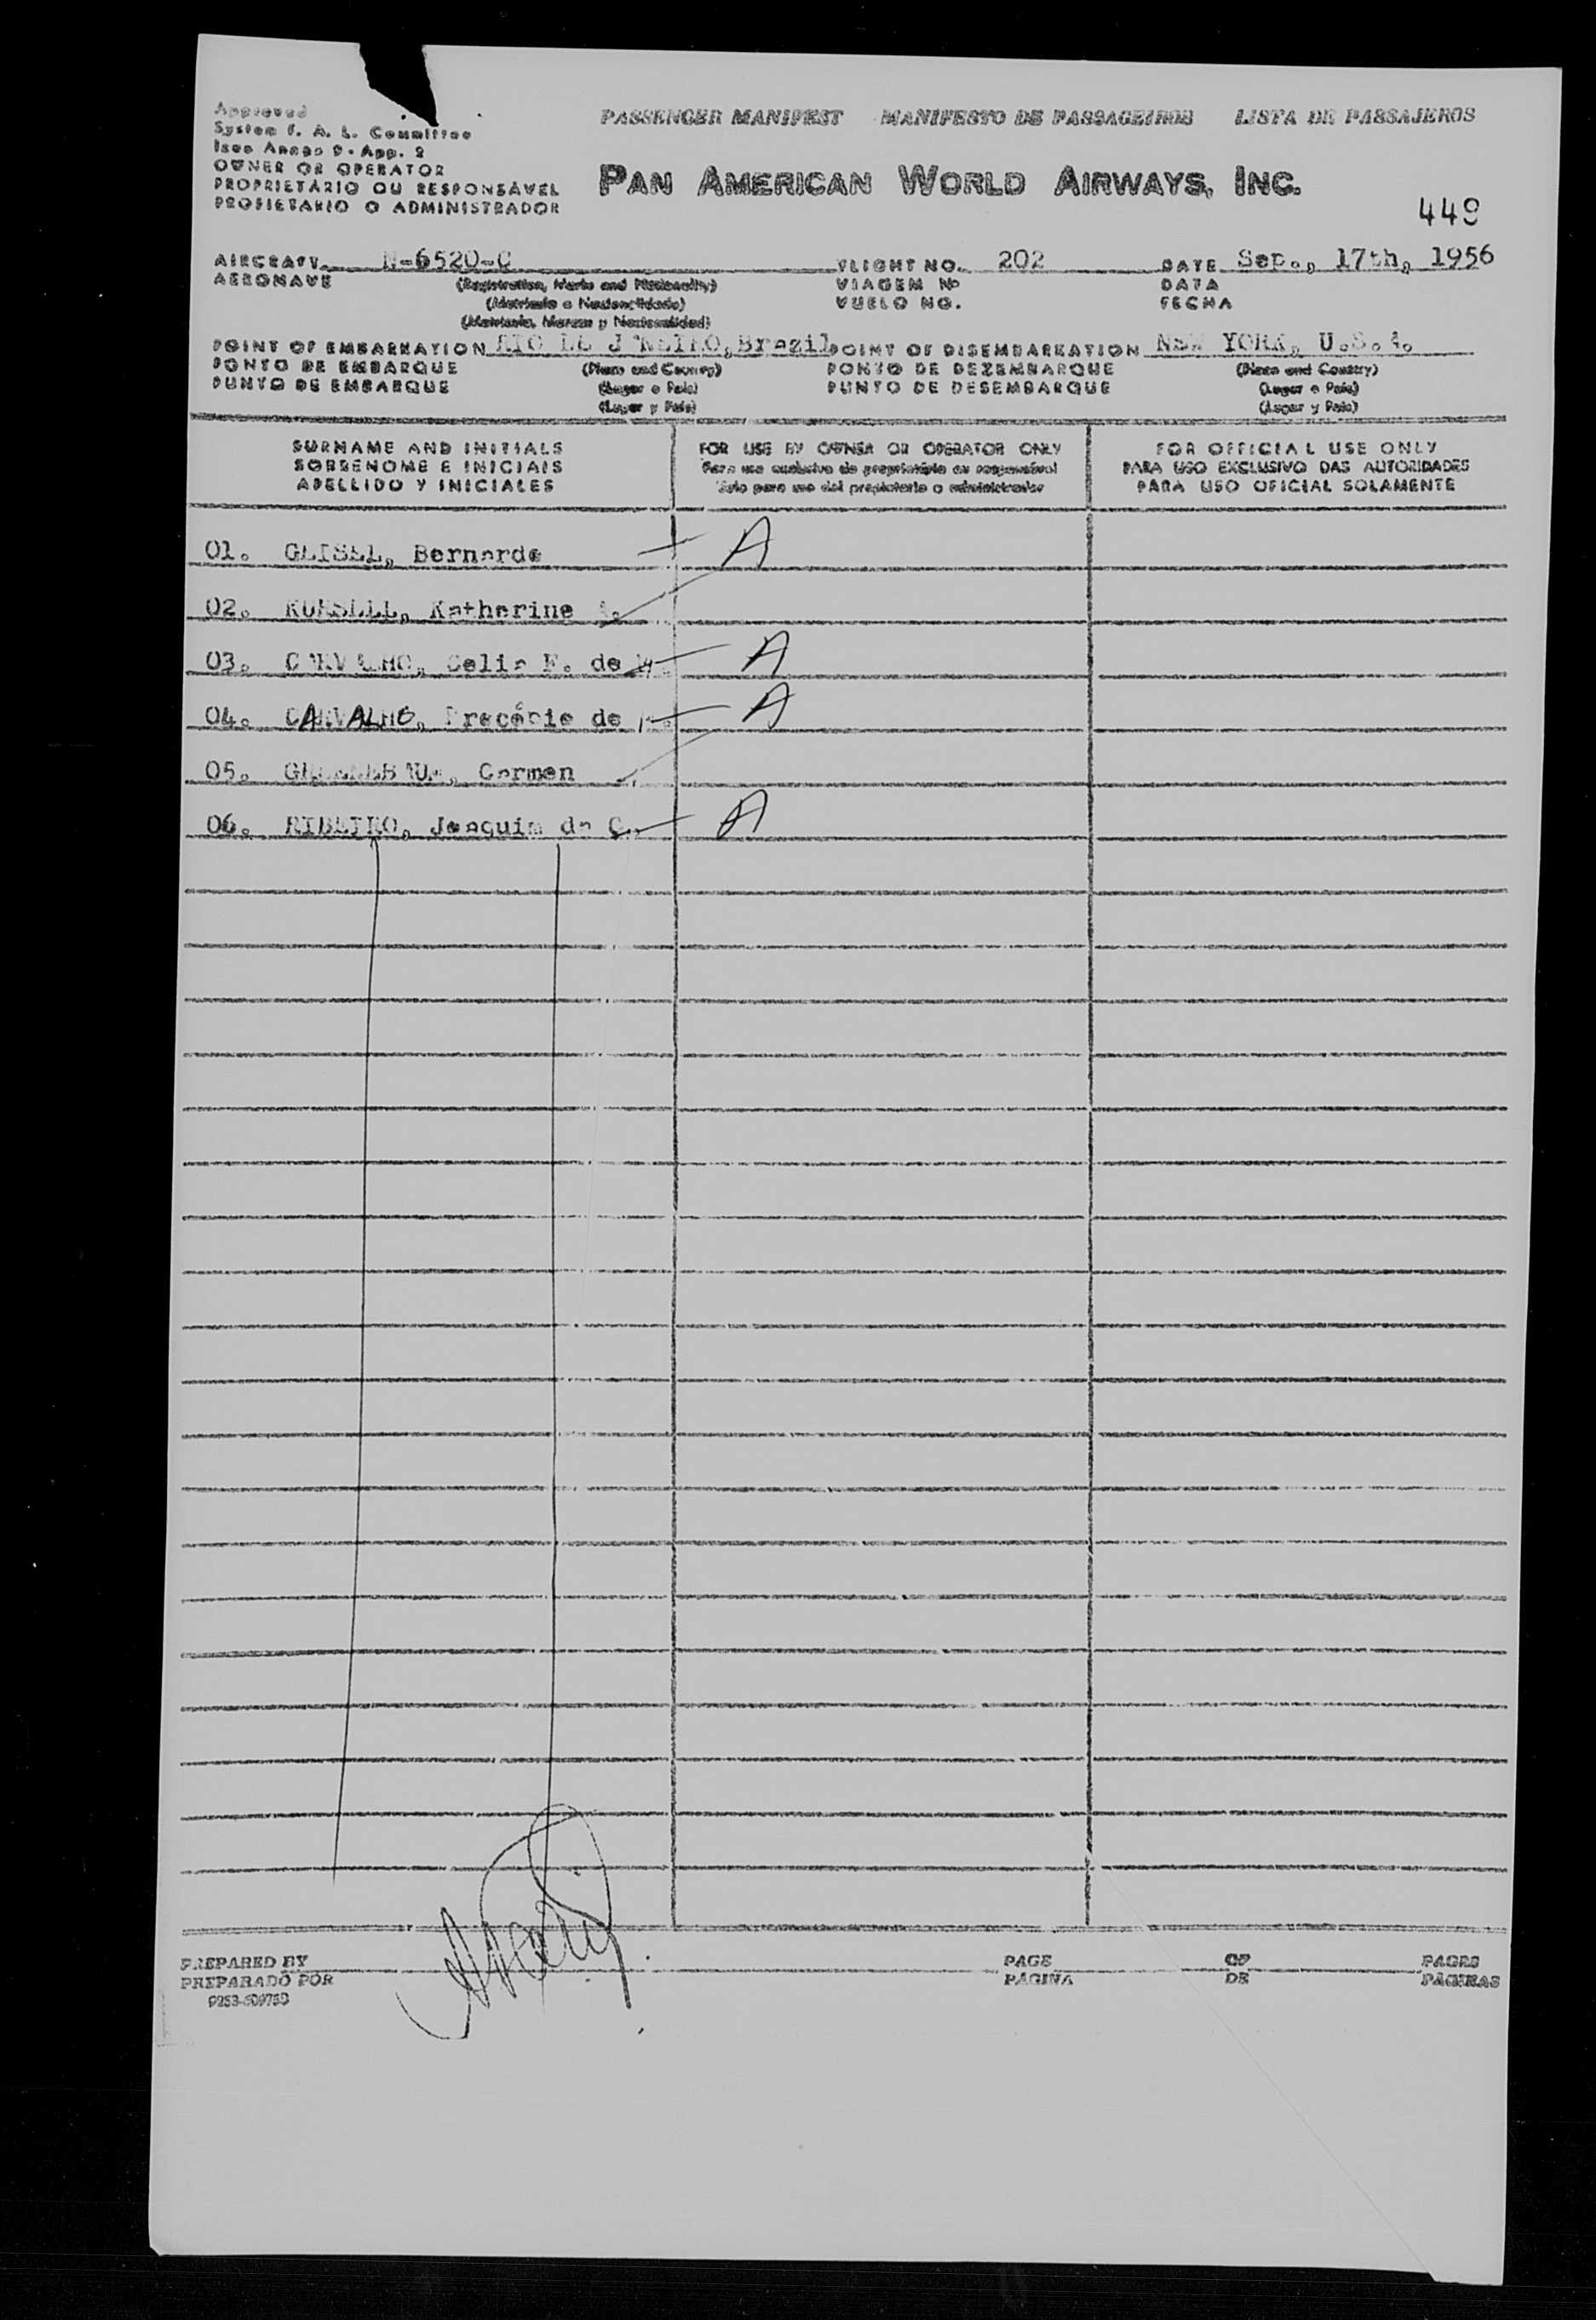 Approved
System F. A. L. Committee
Icao Annex 9 - App. 2
OWNER OR OPERATOR
PROPRIETÁRIO OU RESPONSÁVEL
PROPIETARIO O ADMINISTRADOR
PASSENGER MANIFEST MANIFESTO DE PASSAGEIROS LISTA DE PASSAJEROS
PAN AMERICAN WORLD AIRWAYS, INC.
449
AIRCRAFT N-6520-C FLIGHT NO. 202 DATE Sep., 17th, 1956
AERONAVE (Registration, Marks and Nationality) VIAGEM Nº DATA
(Matrícula e Nacionalidade) VUELO NO. FECHA
(Matrícula, Marcas y Nacionalidad)
POINT OF EMBARKATION RIO DE JANEIRO, Brazil POINT OF DISEMBARKATION NEW YORK, U.S.A.
PONTO DE EMBARQUE (Place and Country) PONTO DE DEZEMBARQUE (Place and Country)
PUNTO DE EMBARQUE (Lugar e País) PUNTO DE DESEMBARQUE (Lugar e País)
(Lugar y País) (Lugar y País)
SURNAME AND INITIALS FOR USE BY OWNER OR OPERATOR ONLY FOR OFFICIAL USE ONLY
SOBRENOME E INICIAIS Para uso exclusivo do proprietário ou responsável PARA USO EXCLUSIVO DAS AUTORIDADES
APELLIDO Y INICIALES Solo para uso del propietario o administrador PARA USO OFICIAL SOLAMENTE
01. GEISEL, Bernardo A
02. Katherine
03. CARVALHO, Celia F. de M. A
04. CARVALHO, de A
05. Carmen
06. RIBEIRO, Joaquim da C. A
PREPARED BY PAGE OF PAGES
PREPARADO POR PÁGINA DE PÁGINAS